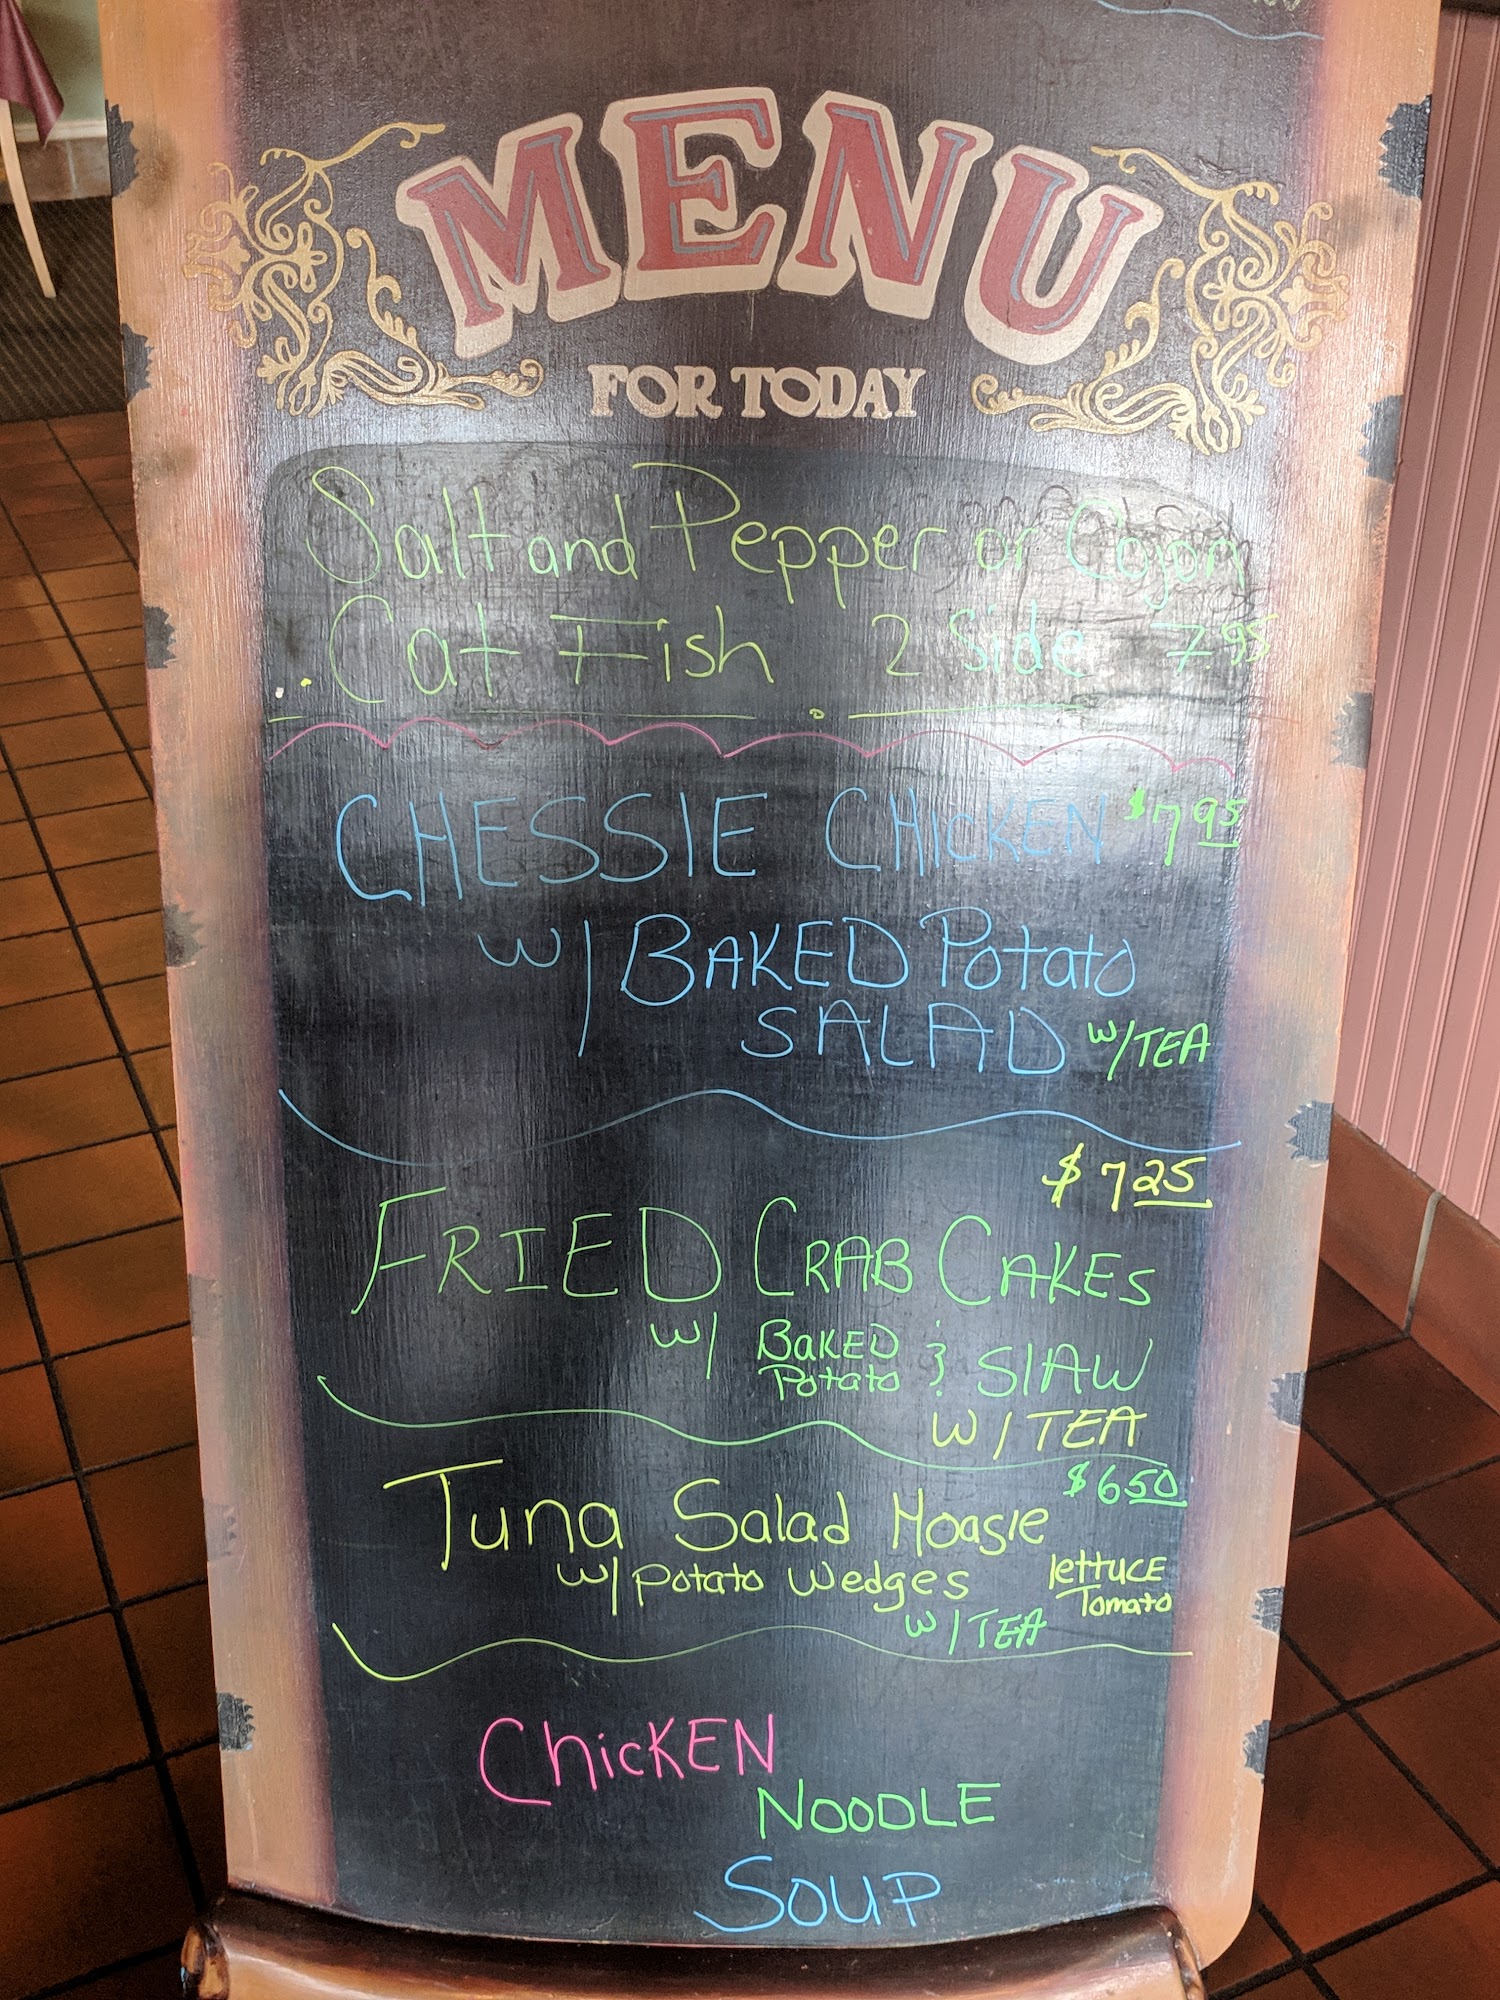 MENU
FOR TODAY
Salt and Pepper or Cajon
Cat Fish 2 Side 7.95
CHESSIE CHICKEN $7 95
w/ BAKED Potato
SALAD w/TEA
$7 25
FRIED CRAB CAKES
w/ BAKED Potato & SlAW
W/TEA
$6 50
Tuna Salad Hoagie
w/ potato Wedges lettuce Tomato
w/TEA
ChicKEN
NOODLE
SOUP